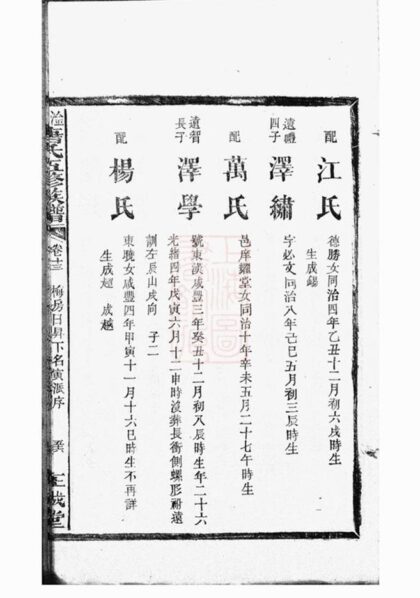 配 江氏 德勝女同治四年乙丑十二月初六戌時生
生成錫
遺禮四子 澤繡 字必文同治八年己巳五月初三辰時生
配 萬氏 邑庠鍾堂女同治十年辛未五月二十七午時生
遺智長子 澤學 號東漢咸豐三年癸丑十二月初八辰時生年二十六
光緒四年戊寅六月十二申時沒葬長衝側螺形祔遠
訓左艮山戌向 子二
配 楊氏 東曉女咸豐四年甲寅十一月十六巳時生不再詳
生成超 成越
氏五修族譜 卷十三 梅房日昇下名演派序 三誠堂